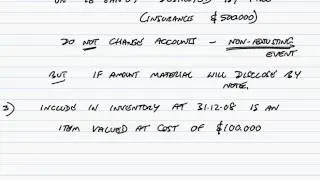 (INSURANCE $500000)
DO NOT CHANGE ACCOUNTS - NON-ADJUSTING
EVENT
BUT IF AMOUNT MATERIAL WILL DISCLOSE BY
NOTE.
3) INCLUDE IN INVENTORY AT 31.12.08 IS AN
ITEM VALUED AT COST OF $100.000